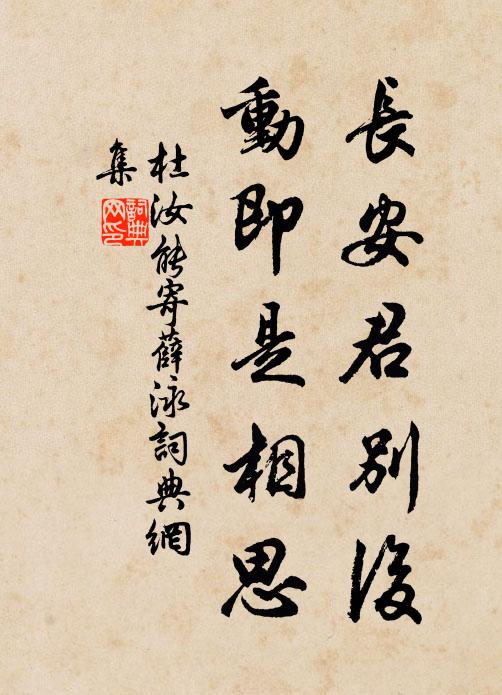 長安君別後
動即是相思
杜汝能寄薛泳詞典網
集
詞典網印